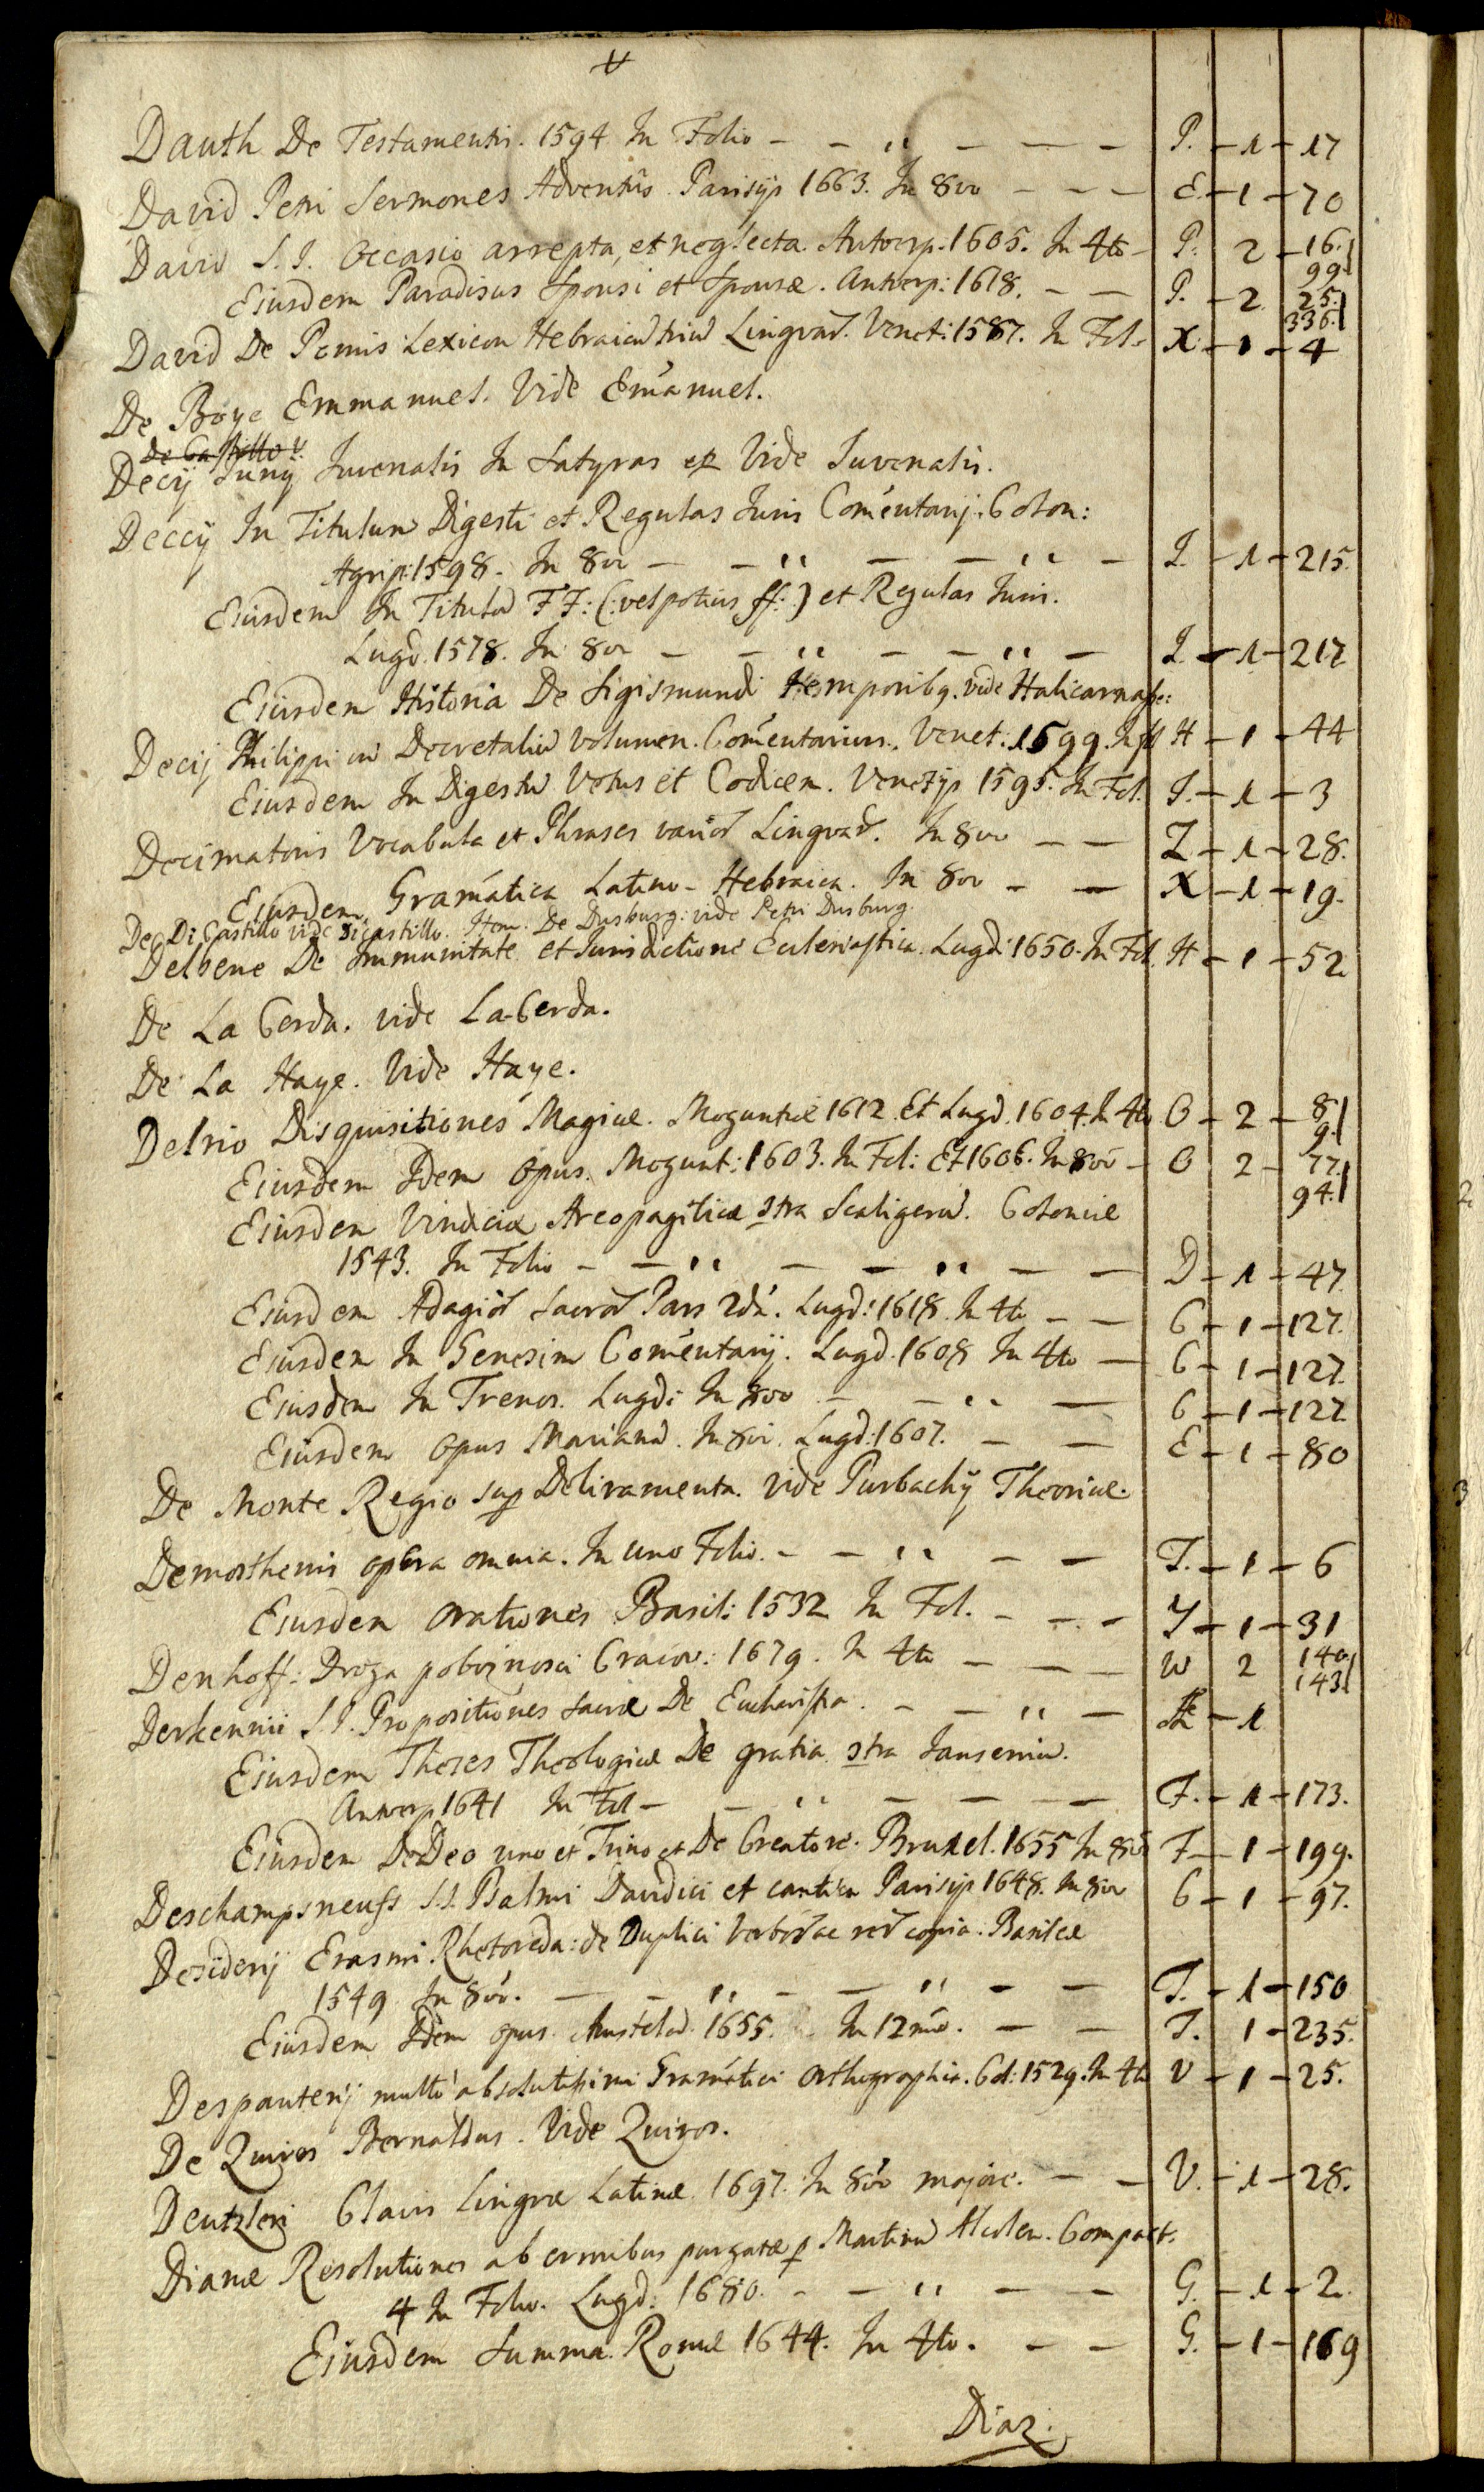 Dauth De Testamentis. 1594 In Folio - - „ - - - P. - 1 - 17
David Petri Sermones Adventûs Parisijs 1663. In 8vo - - - E. - 1 - 70
David S. I. Occasio arrepta, et neglecta. Antverp. 1605. In 4to - P. 2 - 16. 99.
Eiusdem Paradisus Sponsi et Sponsæ. Antverp: 1618. - - P. - 2. 25. 336.
David De Pomis Lexicon Hebraicū triū Linguar. Venet: 1587. In Fol. X. - 1 - 4
De Boye Emmanuel. Vide Emanuel.
De Castillo V.
Decij Junij Juvenalis In Satyras Vide Juvenalis.
Deccij In Titulum Digesti et Regulas Juris Comentarij. Colon:
Agrip: 1598. In 8vo - - „ - - „ - I. - 1 - 215.
Eiusdem In Titulū FF: (:vel potius ff:) et Regulas Juris.
Lugd. 1578. In 8vo - - „ - - „ - I. - 1 - 217
Eiusdem Historia De Sigismundi temporibq. vide Halicarnass:
Decij Philippi in Decretaliū Volumen. Comentarium. Venet: 1599. In fol H - 1 - 44
Eiusdem In Digestū Vetus et Codicem. Venetijs 1595. In Fol. I. - 1 - 3
Decimatoris Vocabula et Phrases varior Linguar. In 8vo - - Z - 1 - 28.
Eiusdem. Gramatica Latino-Hebraica. In 8vo - - X - 1 - 19.
De Di Castillo vide Dicastillo. Item. De Dusburg: vide Petri Dusburg.
Delbene De Immunitate et Jurisdictione Ecclesiastica. Lugd: 1650. In Fol. H - 1 - 52
De La Cerda. vide La-Cerda.
De La Haye. Vide Haye.
Delrio Disquisitiones Magicæ. Moguntiæ 1612. Et Lugd. 1604. In 4to O - 2 - 8. 9.
Eiusdem Idem Opus. Mogunt: 1603. In Fol: Et 1606. In 8vo - O 2 - 77. 94.
Eiusdem Vindiciæ Areopagiticæ ɔtra Scaligerū. Coloniæ
1543. In Folio - - „ - - „ - - D - 1 - 47.
Eiusdem Adagior Sacror Pars 2da. Lugd: 1618. In 4to - - C - 1 - 127.
Eiusdem In Genesim Comentarij. Lugd. 1608 In 4to - C - 1 - 127.
Eiusdem In Trenos. Lugd: In 8vo - - „ - C - 1 - 127
Eiusdem Opus Marianū. In 8vo. Lugd: 1607. - - E - 1 - 80
De Monte Regio sup Deliramenta. vide Purbachij Theoricæ.
Demosthenis opera omnia. In uno Folio. - - „ - - T. - 1 - 6
Eiusdem orationes Basil: 1532 In Fol. - - - T - 1 - 31
Denhoff: Droga pobożności Cracov: 1679. In 4to - - - W 2 140. 143.
Derkennii S. I. Propositiones sacræ De Eucharistia. - - „ - - 1
Eiusdem Theses Theologicæ De gratia ɔtra Janseniū.
Antverp 1641 In Fol - - „ - - - F. - 1 - 173.
Eiusdem De Deo uno et Trino et De Creatore. Bruxel. 1655 In 8vo F - 1 - 199.
Deschampsneufs S. I. Psalmi Davidici et cantica Parisijs 1648. In 8vo C - 1 - 97.
Desiderij Erasmi Rhotoroda: de Duplici Verbor ac rer copia. Basileæ
1549 In 8vo. - - „ - - „ - - T. - 1 - 150
Eiusdem Idem opus. Amstelod. 1655. In 12mo. - - T. 1 - 235.
Despauterij multò absolutissimi Gramatici Orthographia. Col: 1529. In 4to V - 1 - 25.
De Quiros Bernaldus. Vide Quiros.
Dentzleri Clavis Linguæ Latinæ 1697. In 8vo majore. - - V. - 1 - 28.
Dianæ Resolutiones ab erroribus purgatæ p Martinū Alcolea. Compact.
4 In Folio. Lugd. 1680. - - „ - - G. - 1 - 2.
Eiusdem Summa. Romæ 1644. In 4to. - - G. - 1 - 169
Diaz.